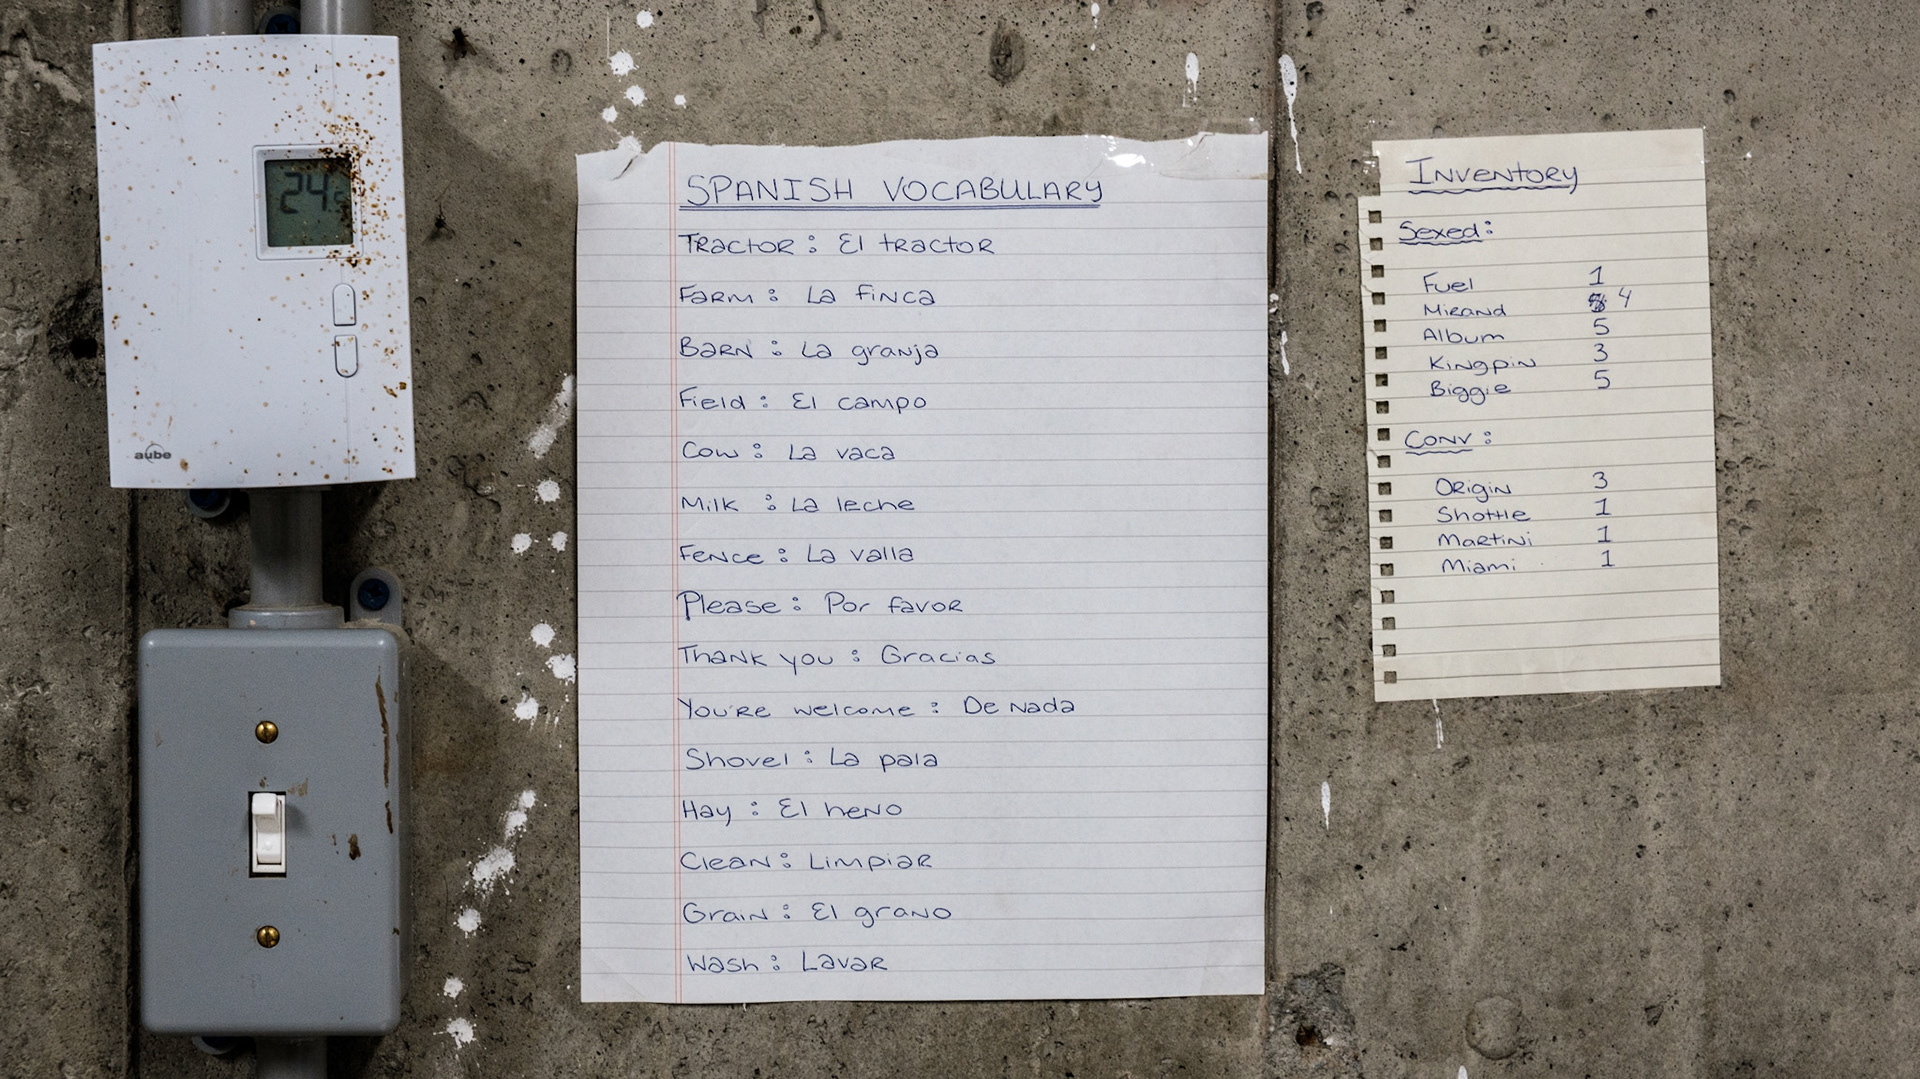 24.5
aube
SPANISH VOCABULARY
Tractor : El tractor
Farm : La finca
Barn : La granja
Field : El campo
Cow : La vaca
Milk : La leche
Fence : La valla
Please : Por favor
Thank you : Gracias
You're welcome : De Nada
Shovel : La pala
Hay : El heno
Clean : Limpiar
Grain : El grano
Wash : Lavar
Inventory
Sexed :
Fuel 1
Mirand 4
Album 5
Kingpin 3
Biggie 5
Conv :
Origin 3
Shottle 1
Martini 1
Miami 1